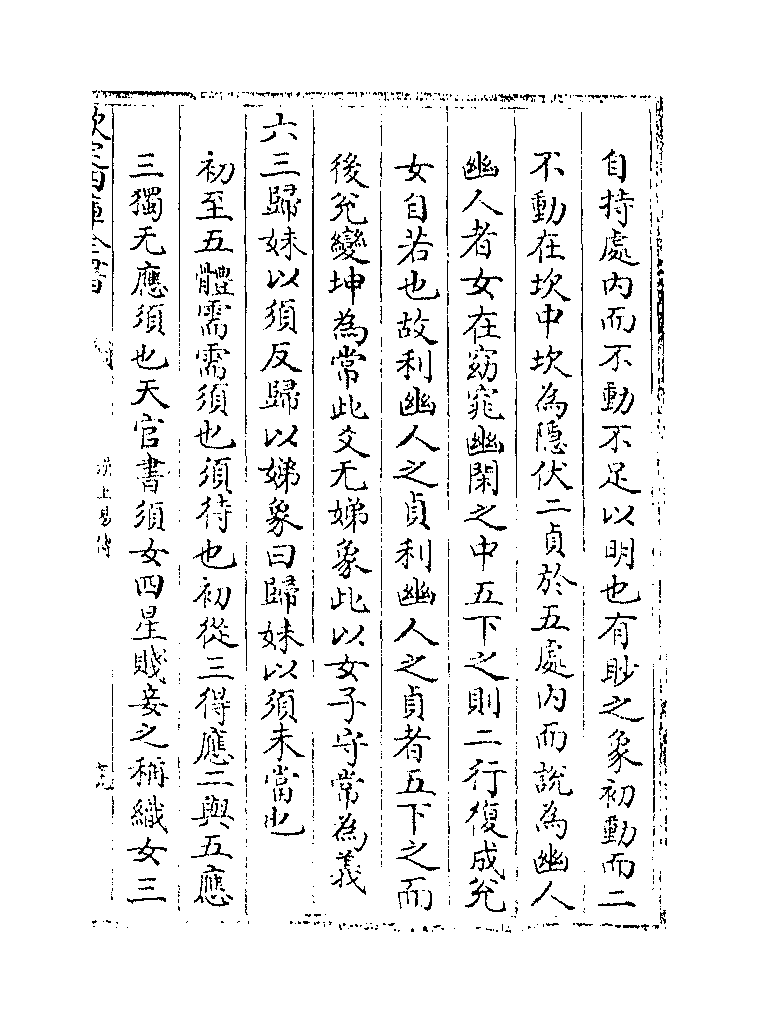 自持處内而不動不足以明也有眇之象初動而二
不動在坎中坎為隠伏二貞於五處内而說為幽人
幽人者女在窈窕幽閑之中五下之則二行復成兊
女自若也故利幽人之貞利幽人之貞者五下之而
後兊變坤為常此爻无娣象此以女子守常為義
六三歸妹以須反歸以娣象曰歸妹以須未當也
初至五體需需須也須待也初從三得應二與五應
三獨无應須也天官書須女四星賤妾之稱織女三
欽定四庫全書
漢上易傳